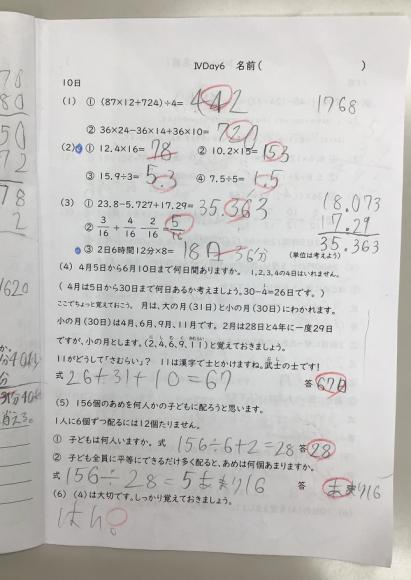 ⅣDay6 名前( )
10日
(1) ① (87×12+724)÷4= 442 1768
② 36×24-36×14+36×10= 720
(2) ① 12.4×16= 78 ② 10.2×15= 153
③ 15.9÷3= 5.3 ④ 7.5÷5= 1.5
(3) ① 23.8-5.727+17.29= 35.363 18.073
② 3/16 + 4/16 - 2/16 = 5/16 17.29
35.363
③ 2日6時間12分×8= 18日 36分 (単位は考えよう)
(4) 4月5日から6月10日まで何日間ありますか。 1,2,3,4の4日はいれません。
( 4月は5日から30日まで何日あるか考えましょう。30-4=26日です。)
ここでちょっと覚えておこう。 月は、大の月(31日)と小の月(30日)にわかれます。
小の月(30日)は4月、6月、9月、11月です。2月は28日と4年に一度29
日ですが、小の月とします。(2, 4, 6, 9, 11)と覚えておきましょう。
11がどうして「さむらい」? 11は漢字で士とかけますね。武士の士です!
式 26+31+10=67 答 67日
(5) 156個のあめを何人かの子どもに配ろうと思います。
1人に6個ずつ配るには12個たりません。
① 子どもは何人いますか。 式 156÷6+2=28 答 28
② 子ども全員に平等にできるだけ多く配ると、あめは何個あまりますか。
式 156÷28=5あまり16 答 あまり16
(6) (4)は大切です。しっかり覚えておきましょう。
はい。